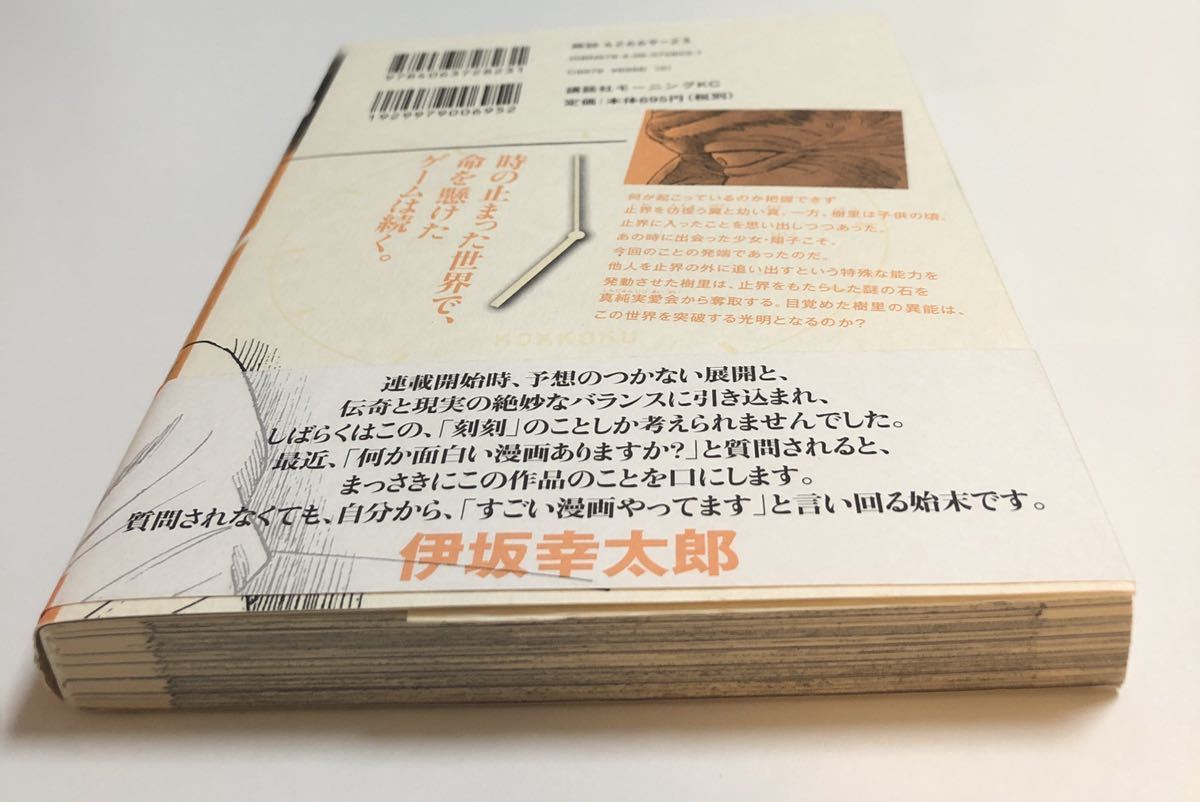 9784063728231
1929979006952
講談社モーニングKC
定価：本体695円（税別）
時の止まった世界で、
命を懸けた
ゲームは続く。
何が起こっているのか把握できず
止界を彷徨う翼と幼い真。一方、樹里は子供の頃、
止界に入ったことを思い出しつつあった。
あの時に出会った少女・翔子こそ、
今回のことの発端であったのだ。
他人を止界の外に追い出すという特殊な能力を
発動させた樹里は、止界をもたらした謎の石を
真純実愛会から奪取する。目覚めた樹里の異能は、
この世界を突破する光明となるのか？
KOKKOKU
連載開始時、予想のつかない展開と、
伝奇と現実の絶妙なバランスに引き込まれ、
しばらくはこの、「刻刻」のことしか考えられませんでした。
最近、「何か面白い漫画ありますか？」と質問されると、
まっさきにこの作品のことを口にします。
質問されなくても、自分から、「すごい漫画やってます」と言い回る始末です。
伊坂幸太郎